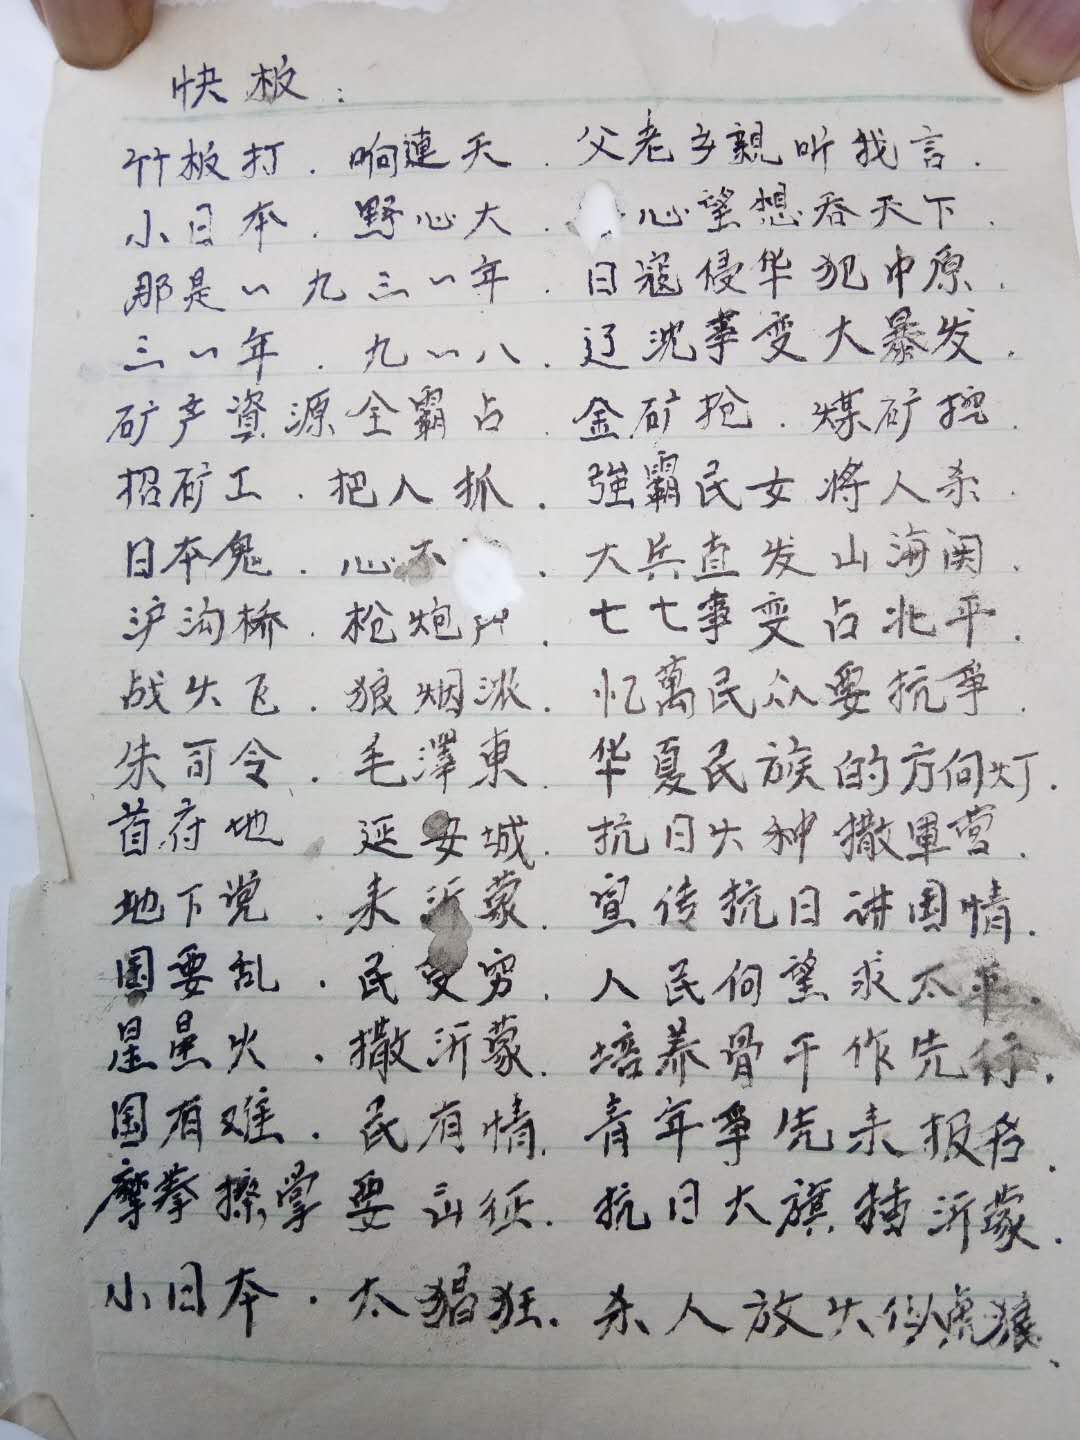 快板：
竹板打．响連天．父老乡親听我言．
小日本．野心大．心望想吞天下．
那是一九三一年．日寇侵华犯中原．
三一年．九一八．辽沈事变大暴发．
矿产資源全霸占．金矿抢．煤矿挖．
招矿工．把人抓．強霸民女将人杀．
日本鬼．心不．大兵直发山海関．
沪沟桥．枪炮．七七事变占北平．
战火飞．狼烟浓．忆萬民众要抗爭．
朱司令．毛澤東．华夏民族的方向灯．
首府地 延安城．抗日火种撒軍营．
地下党．来沂蒙．宣传抗日讲国情．
国要乱．民受穷．人民向望求太平．
星星火．撒沂蒙．培养骨干作先行．
国有难．民有情．青年爭先来报名．
摩拳擦掌要出征．抗日大旗插沂蒙．
小日本．太猖狂．杀人放火似虎狼．